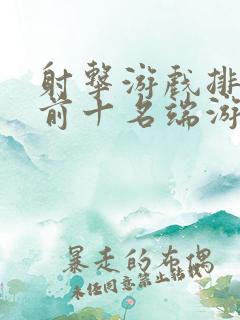 射击游戏排
前十名端游
暴走的布偶
未经同意禁止转载